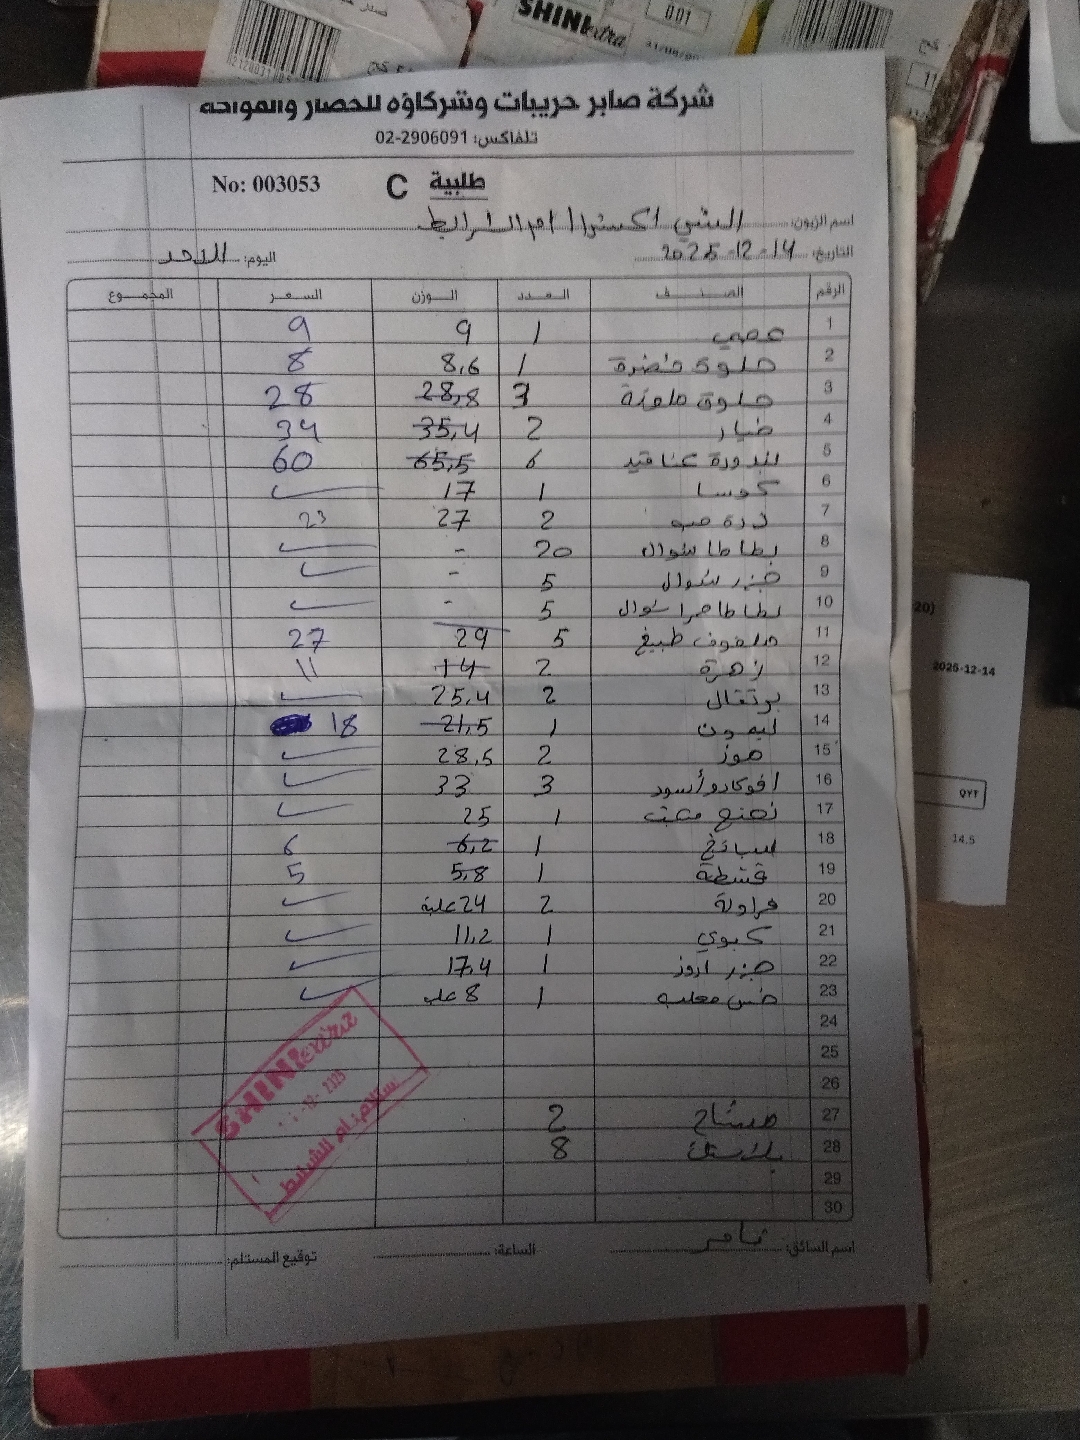 SHINIextra
001
11
شركة صابر حريبات وشركاؤه للخضار والفواكه
تلفاكس: 02-2906091
No: 003053 C طلبية
اسم الزبون: الشني اكسترا / ام الشرايط
التاريخ: 14-12-2025 اليوم: الاحد
الرقم الصنف العدد الوزن السعر المجموع
1 عجمي 1 9 9
2 حلوة خضرة 1 8,6 8
3 حلوة ملونة 3 28,8 28
4 خيار 2 35,4 34
5 بندورة عناقيد 6 65,5 60
6 كوسا 1 17 ✓
7 ذرة حب 2 27 23
8 بطاطا شوال 20 - ✓
9 جزر شوال 5 - ✓
10 بطاطا حمرا شوال 5 - ✓
11 ملفوف طبيخ 5 29 27
12 زهرة 2 14 11
13 برتقال 2 25,4 ✓
14 ليمون 1 21,5 18
15 موز 2 28,5 ✓
16 افوكادو أسود 3 33 ✓
17 نعنع 1 25 ✓
18 سبانخ 1 6,2 6
19 قشطة 1 5,8 5
20 فراولة 2 24 علبة ✓
21 كيوي 1 11,2 ✓
22 جزر اروز 1 17,4 ✓
23 خس معلب 1 8 علب ✓
24
25
26
27 مشتاح 2
28 بلاستك 8
29
30
SHINIextra
-12-2025
اسم السائق: تامر الساعة: توقيع المستلم:
20)
2025-12-14
QTY
14.5